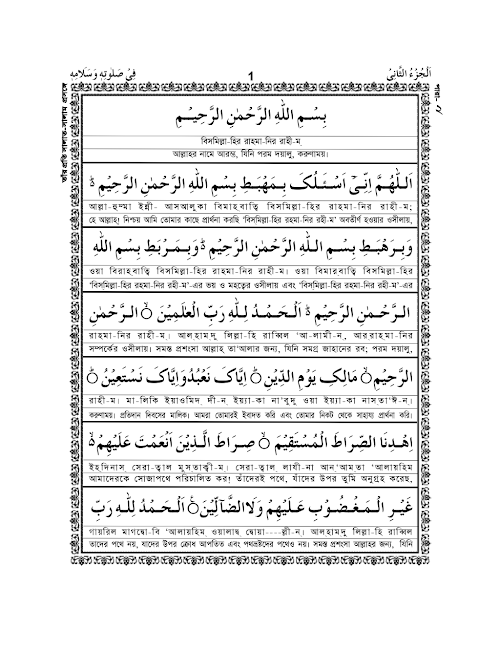 اَلْجُزْءُ الثَّانِیْ
1
فِیْ صَلٰوتِهٖ وَسَلَامِهٖ
بِسْمِ اللهِ الرَّحْمٰنِ الرَّحِیْمِ
বিসমিল্লা-হির রাহমা-নির রাহী-ম্
আল্লাহর নামে আরম্ভ, যিনি পরম দয়ালু, করুণাময়।
اَللّٰهُمَّ اِنِّیْ اَسْـَٔلُکَ بِمَهْبَطِ بِسْمِ اللهِ الرَّحْمٰنِ الرَّحِیْمِ ؕ
আল্লা-হুম্মা ইন্নী- আসআলুকা বিমাহ্বাত্বি বিসমিল্লা-হির রাহমা-নির রাহী-ম;
হে আল্লাহ! নিশ্চয় আমি তোমার কাছে প্রার্থনা করছি ‘বিস্‌মিল্লা-হির রহমা-নির রহী-ম’ অবতীর্ণ হওয়ার ওসীলায়,
وَبِرَهْبَطِ بِسْمِ اللهِ الرَّحْمٰنِ الرَّحِیْمِ ؕ وَبِمَرْبَطِ بِسْمِ اللهِ
ওয়া বিরাহ্বাত্বি বিসমিল্লা-হির রাহমা-নির রাহী-ম। ওয়া বিমারবাত্বি বিসমিল্লা-হির
‘বিস্‌মিল্লা-হির রহমা-নির রহী-ম’-এর ভয় ও মহত্বের ওসীলায় এবং ‘বিস্‌মিল্লা-হির রহমা-নির রহী-ম’-এর
الرَّحْمٰنِ الرَّحِیْمِ ؕ اَلْحَمْدُ لِلّٰهِ رَبِّ الْعٰلَمِیْنَ ۙ الرَّحْمٰنِ
রাহমা-নির রাহী-ম। আলহামদু লিল্লা-হি রাব্বিল ‘আ-লামী-ন, আররাহমা-নির
সম্পর্কের ওসীলায়। সমস্ত প্রশংসা আল্লাহ্ তা‘আলার জন্য, যিনি সমগ্র জাহানের রব; পরম দয়ালু,
الرَّحِیْمِ ۙ مَالِکِ یَوْمِ الدِّیْنِ ؕ اِیَّاکَ نَعْبُدُ وَاِیَّاکَ نَسْتَعِیْنُ ؕ
রাহী-ম। মা-লিকি ইয়াওমিদ্ দী-ন ইয়্যা-কা না‘বুদু ওয়া ইয়্যা-কা নাস্তা‘ঈ-ন।
করুণাময়। প্রতিদান দিবসের মালিক। আমরা তোমারই ইবাদত করি এবং তোমার নিকট থেকে সাহায্য প্রার্থনা করি।
اِهْدِنَا الصِّرَاطَ الْمُسْتَقِیْمَ ۙ صِرَاطَ الَّذِیْنَ اَنْعَمْتَ عَلَیْهِمْ ۙ
ইহদিনাস সেরা-ত্বাল মুসতাক্বী-ম। সেরা-ত্বাল লাযী-না আন‘আমতা ‘আলায়হিম
আমাদেরকে সোজাপথে পরিচালিত কর! তাঁদেরই পথে, যাঁদের উপর তুমি অনুগ্রহ করেছ,
غَیْرِ الْمَغْضُوْبِ عَلَیْهِمْ وَلَا الضَّآلِّیْنَ ۙ اَلْحَمْدُ لِلّٰهِ رَبِّ
গায়রিল মাগদ্বো-বি ‘আলায়হিম ওয়ালাদ্ব দ্বোয়া----ল্লী-ন। আলহামদু লিল্লা-হি রাব্বিল
তাদের পথে নয়, যাদের উপর ক্রোধ আপতিত এবং পথভ্রষ্টদের পথেও নয়। সমস্ত প্রশংসা আল্লাহর জন্য, যিনি